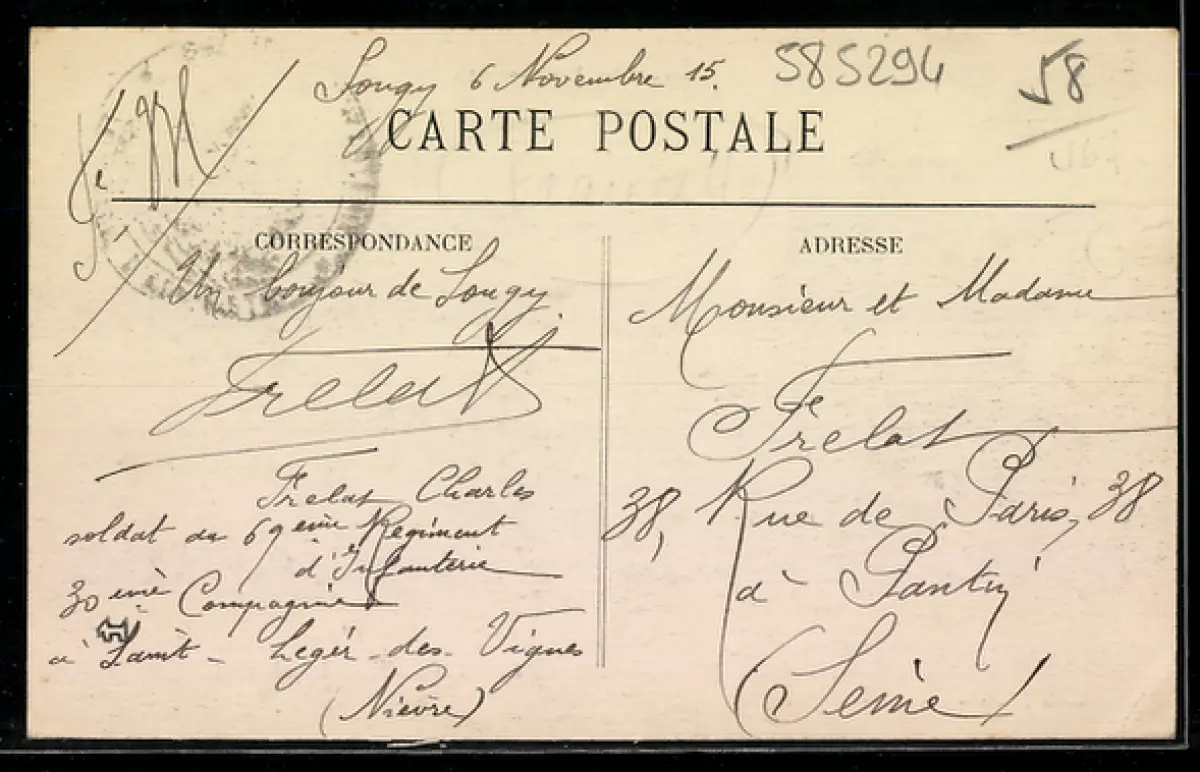 Sougy 6 Novembre 15.
585294
58
CARTE POSTALE
CORRESPONDANCE
Un bonjour de Sougy.
Frelat
Frelat Charles
soldat au 69eme Régiment
d'Infanterie
30 eme Compagnie
à Saint-Leger-des-Vignes
(Nièvre)
ADRESSE
Monsieur et Madame
Frelat
38, Rue de Paris, 38
à Pantin
(Seine)